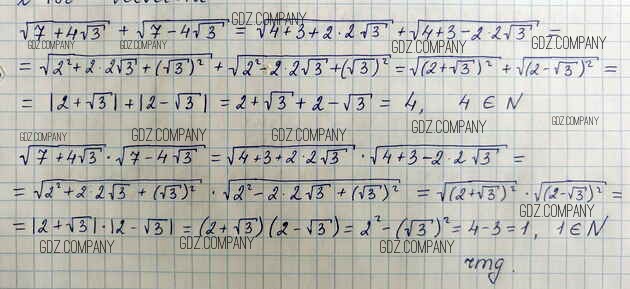 √(7+4√3) + √(7-4√3) = √(4+3+2·2√3) + √(4+3-2·2√3) =
= √(2²+2·2√3+(√3)²) + √(2²-2·2√3+(√3)²) = √((2+√3)²) + √((2-√3)²) =
= |2+√3| + |2-√3| = 2+√3+2-√3 = 4, 4 ∈ N
√(7+4√3) · √(7-4√3) = √(4+3+2·2√3) · √(4+3-2·2√3) =
= √(2²+2·2√3+(√3)²) · √(2²-2·2√3+(√3)²) = √((2+√3)²) · √((2-√3)²) =
= |2+√3|·|2-√3| = (2+√3)(2-√3) = 2²-(√3)² = 4-3 = 1, 1 ∈ N
чтд.
GDZ.COMPANY
GDZ.COMPANY
GDZ.COMPANY
GDZ.COMPANY
GDZ.COMPANY
GDZ.COMPANY
GDZ.COMPANY
GDZ.COMPANY
GDZ.COMPANY
GDZ.COMPANY
GDZ.COMPANY
GDZ.COMPANY
GDZ.COMPANY
GDZ.COMPANY